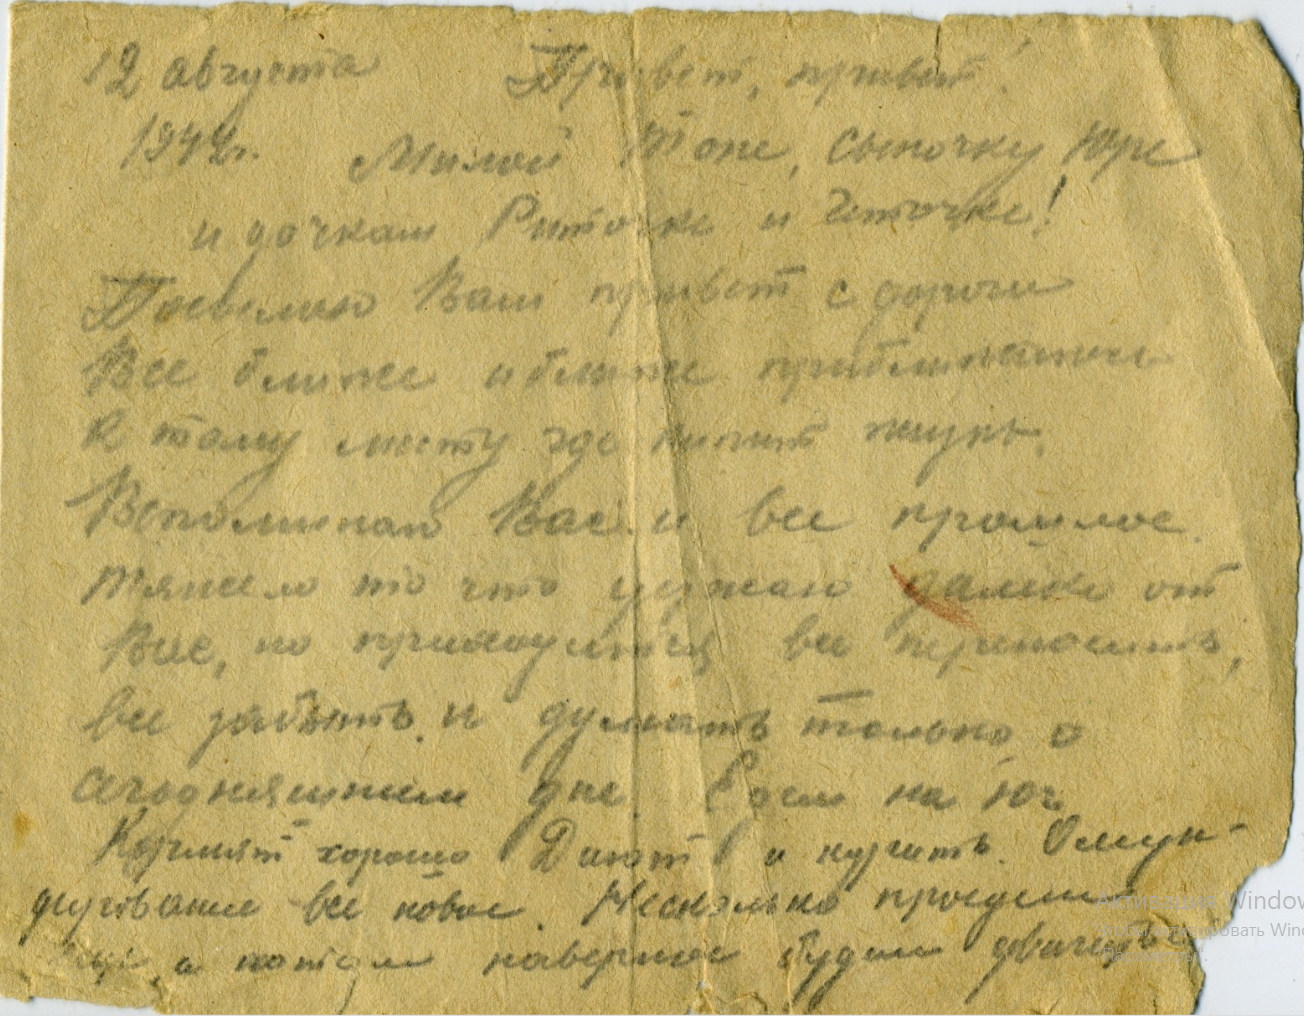 12 августа Привет, привет!
1942г. Милой Тоне, сыночку Юре
и дочкам Риточке и Иточке!
Посылаю Вам привет с дороги
Все ближе и ближе приближаемся
к тому месту где кипит жизнь.
Вспоминаю Вас и все прошлое.
тяжело то что уезжаю далеко от
Вас, но приходится все переносить,
все забыть и думать только о
сегодняшнем дне. Едем на юг.
Кормят хорошо Дают и курить. Обмун-
дирование все новое. Несколько проедем
еще, а потом наверное будем двигаться
Активация Window
Чтобы активировать Wind
"Параметры".